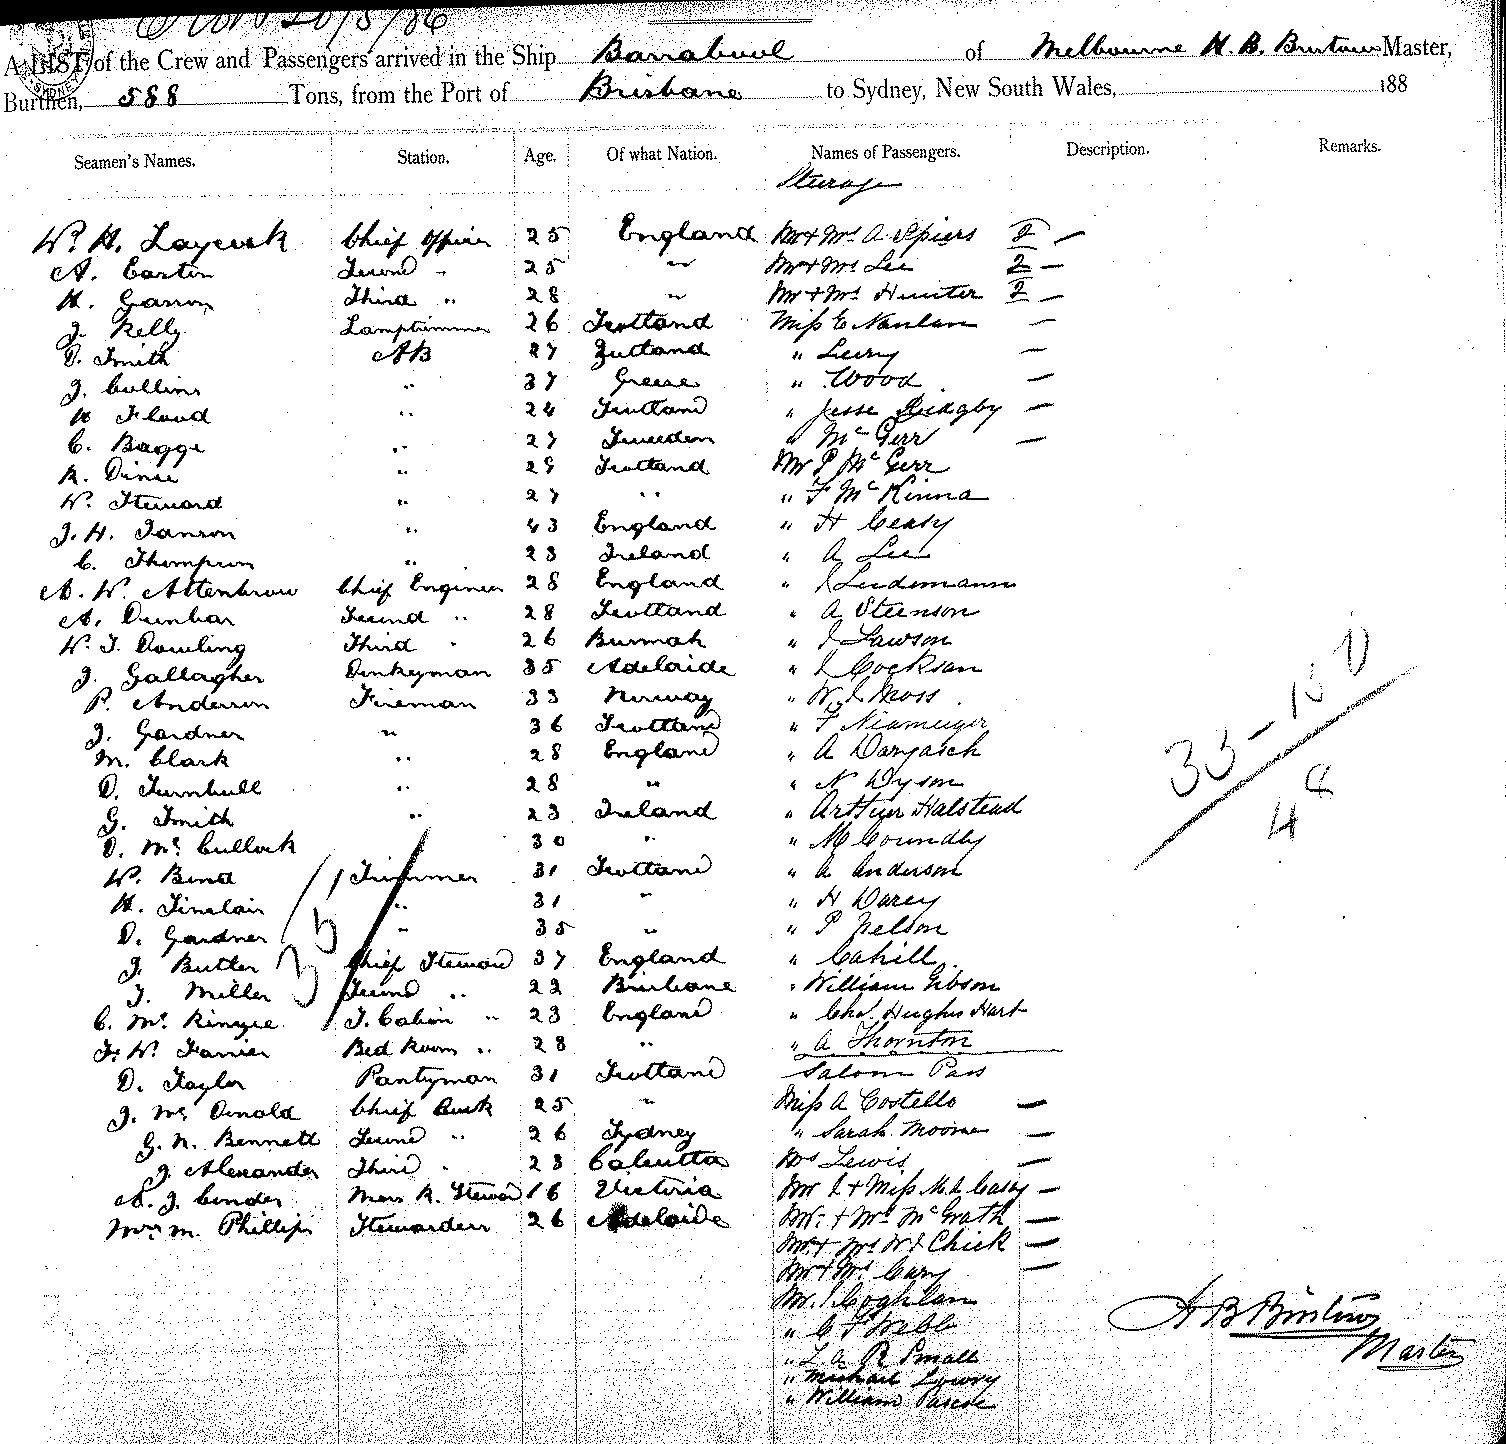 20/5/86
A LIST of the Crew and Passengers arrived in the Ship Barrabool of Melbourne H. B. Burtow Master,
Burthen, 588 Tons, from the Port of Brisbane to Sydney, New South Wales, 188
Seamen's Names. Station. Age. Of what Nation. Names of Passengers. Description. Remarks.
Steerage
Wm. H. Laycock Chief Officer 25 England Mr & Mrs A. Spiers 2 —
A. Easton Second " 25 " Mr & Mrs Lee 2 —
H. Garson Third " 28 " Mr & Mrs Hunter 2 —
J. Kelly Lamptrimmer 26 Scotland Miss E Nanlan —
D. Smith AB 27 " Leery —
J. Collins " 37 Greese " Wood —
" 24 Scotland " Jesse Ridgby —
C. Bagge " 27 Sweeden " McGerr —
" 29 Scotland Mr P McGerr
W. Steward " 27 " " F McKinna
J. H. Janson " 43 England " H Ceasy
C. Thompson " 23 Ireland " A Lee
A. W. Attenbrow Chief Engineer 28 England " J Lindemann
A. Dunbar Second " 28 Scotland " A Steenson
W. J. Dowling Third " 26 Burmah " J Lawson
J. Gallagher Donkeyman 35 Adelaide " J Cockson
P. Anderson Fireman 33 Norway " W J Moss
J. Gardner " 36 Scotland " F Niemeyer
M. Clark " 28 England " A
D. Turnbull " 28 " " N Dyson
G. Smith " 23 Ireland " Arthur Halstead
D. McCullock 30 " " M Coundly
W. Bond Trimmer 31 Scotland " A Anderson
H. Sinclair " 31 " " H Darcy
D. Gardner " 35 " " P Nelson
J. Butler Chief Steward 37 England " Cahill
J. Miller Second " 22 Brisbane " William Gibson
C. McKinzie S. Cabin " 23 England " Chas. Hughes Hart
F. W. Farrier Bed Room " 28 " " A Thornton
D. Taylor Pantryman 31 Scotland Saloon Pass
J. McDonald Chief Cook 25 " Miss A Costello —
G. N. Bennett Second " 26 Sydney " Sarah Moome —
J. Alexander Third " 23 Calcutta Mrs Lewis —
A. J. Cinder Mess R. Steward 16 Victoria Mr J & Miss M. L. Casey —
Mrs M. Phillips Stewardess 26 Adelaide Mr & Mrs McGrath —
Mr & Mrs W J Chick —
Mr & Mrs Cary —
Mr J. Coghlan
" C F Webb
" L A R Small
" Michael Lowry
" William Pascoe
35
33 - 15 0
48
H B Burtow
Master